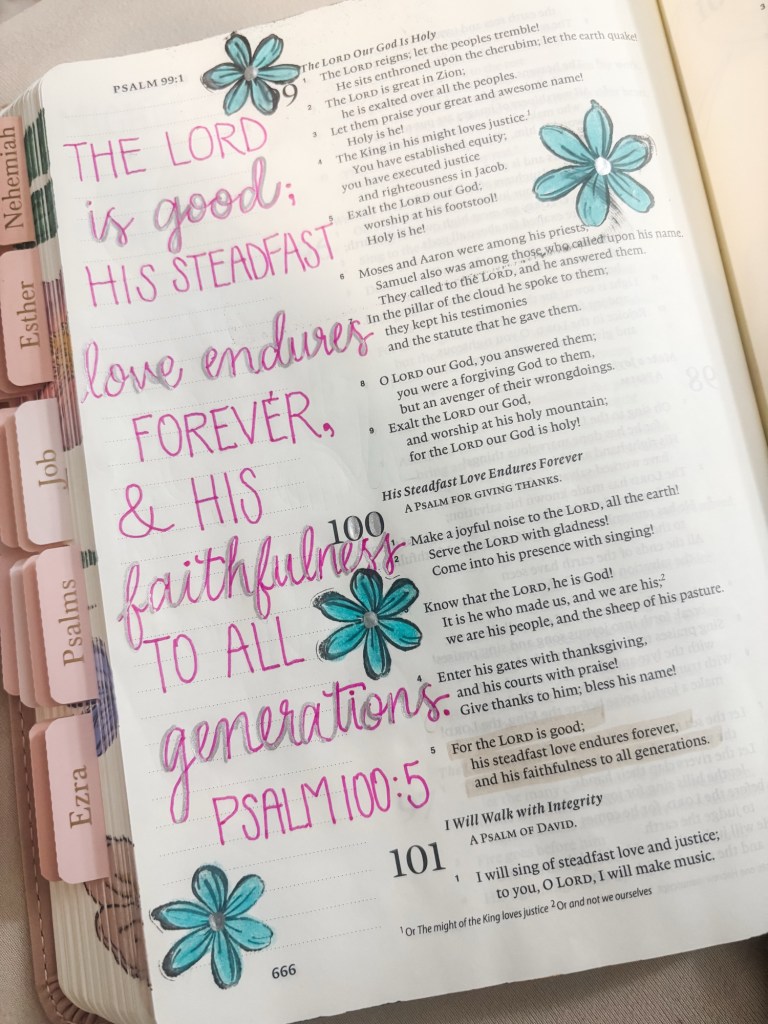 Nehemiah
Esther
Job
Psalms
Ezra
PSALM 99:1
THE LORD
is good;
HIS STEADFAST
love endures
FOREVER,
& HIS
faithfulness
TO ALL
generations.
PSALM 100:5
The LORD Our God Is Holy
9
1 The LORD reigns; let the peoples tremble!
He sits enthroned upon the cherubim; let the earth quake!
2 The LORD is great in Zion;
he is exalted over all the peoples.
3 Let them praise your great and awesome name!
Holy is he!
4 The King in his might loves justice.1
You have established equity;
you have executed justice
and righteousness in Jacob.
5 Exalt the LORD our God;
worship at his footstool!
Holy is he!
6 Moses and Aaron were among his priests,
Samuel also was among those who called upon his name.
They called to the LORD, and he answered them.
7 In the pillar of the cloud he spoke to them;
they kept his testimonies
and the statute that he gave them.
8 O LORD our God, you answered them;
you were a forgiving God to them,
but an avenger of their wrongdoings.
9 Exalt the LORD our God,
and worship at his holy mountain;
for the LORD our God is holy!
His Steadfast Love Endures Forever
A PSALM FOR GIVING THANKS.
100
Make a joyful noise to the LORD, all the earth!
2 Serve the LORD with gladness!
Come into his presence with singing!
Know that the LORD, he is God!
It is he who made us, and we are his;2
we are his people, and the sheep of his pasture.
4 Enter his gates with thanksgiving,
and his courts with praise!
Give thanks to him; bless his name!
5 For the LORD is good;
his steadfast love endures forever,
and his faithfulness to all generations.
I Will Walk with Integrity
A PSALM OF DAVID.
101
1 I will sing of steadfast love and justice;
to you, O LORD, I will make music.
1 Or The might of the King loves justice 2 Or and not we ourselves
666
98